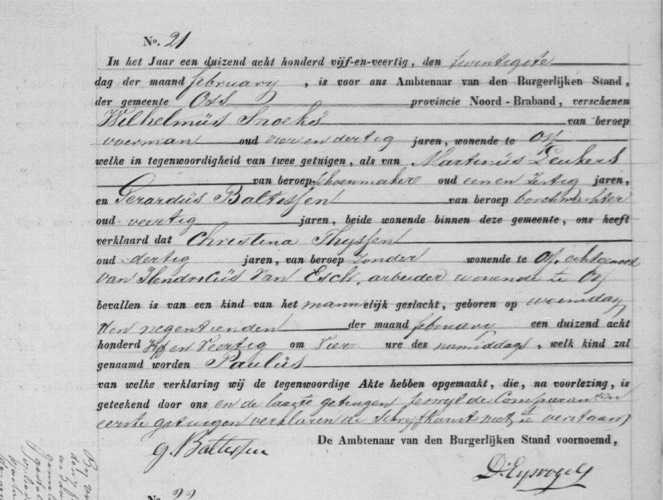 No. 21
In het Jaar een duizend acht honderd vijf-en-veertig, den twentigste
dag der maand february, is voor ons Ambtenaar van den Burgerlijken Stand,
der gemeente Oss provincie Noord-Braband, verschenen
Wilhelmus Snoeks van beroep
voerman oud vier en dertig jaren, wonende te Oss
welke in tegenwoordigheid van twee getuigen, als van Martinus Leukers
van beroep schoenmaker oud een en jaren,
en Gerardus Baltessen van beroep
oud veertig jaren, beide wonende binnen deze gemeente, ons heeft
verklaard dat Christina Thyssen
oud dertig jaren, van beroep zonder wonende te Oss, echtgenoot
van Hendrikus van Esch, arbeider wonende te Oss
bevallen is van een kind van het mannelijk geslacht, geboren op woensdag
den negentienden der maand february een duizend acht
honderd vijf en veertig om vier ure des namiddags, welk kind zal
genaamd worden Paulus
van welke verklaring wij de tegenwoordige Akte hebben opgemaakt, die, na voorlezing, is
geteekend door ons en de laatste getuigen terwyl de Comparant en
eerste getuigen verklaren de schryfkunst niet te verstaan
De Ambtenaar van den Burgerlijken Stand voornoemd,
G. Baltessen
No. 22